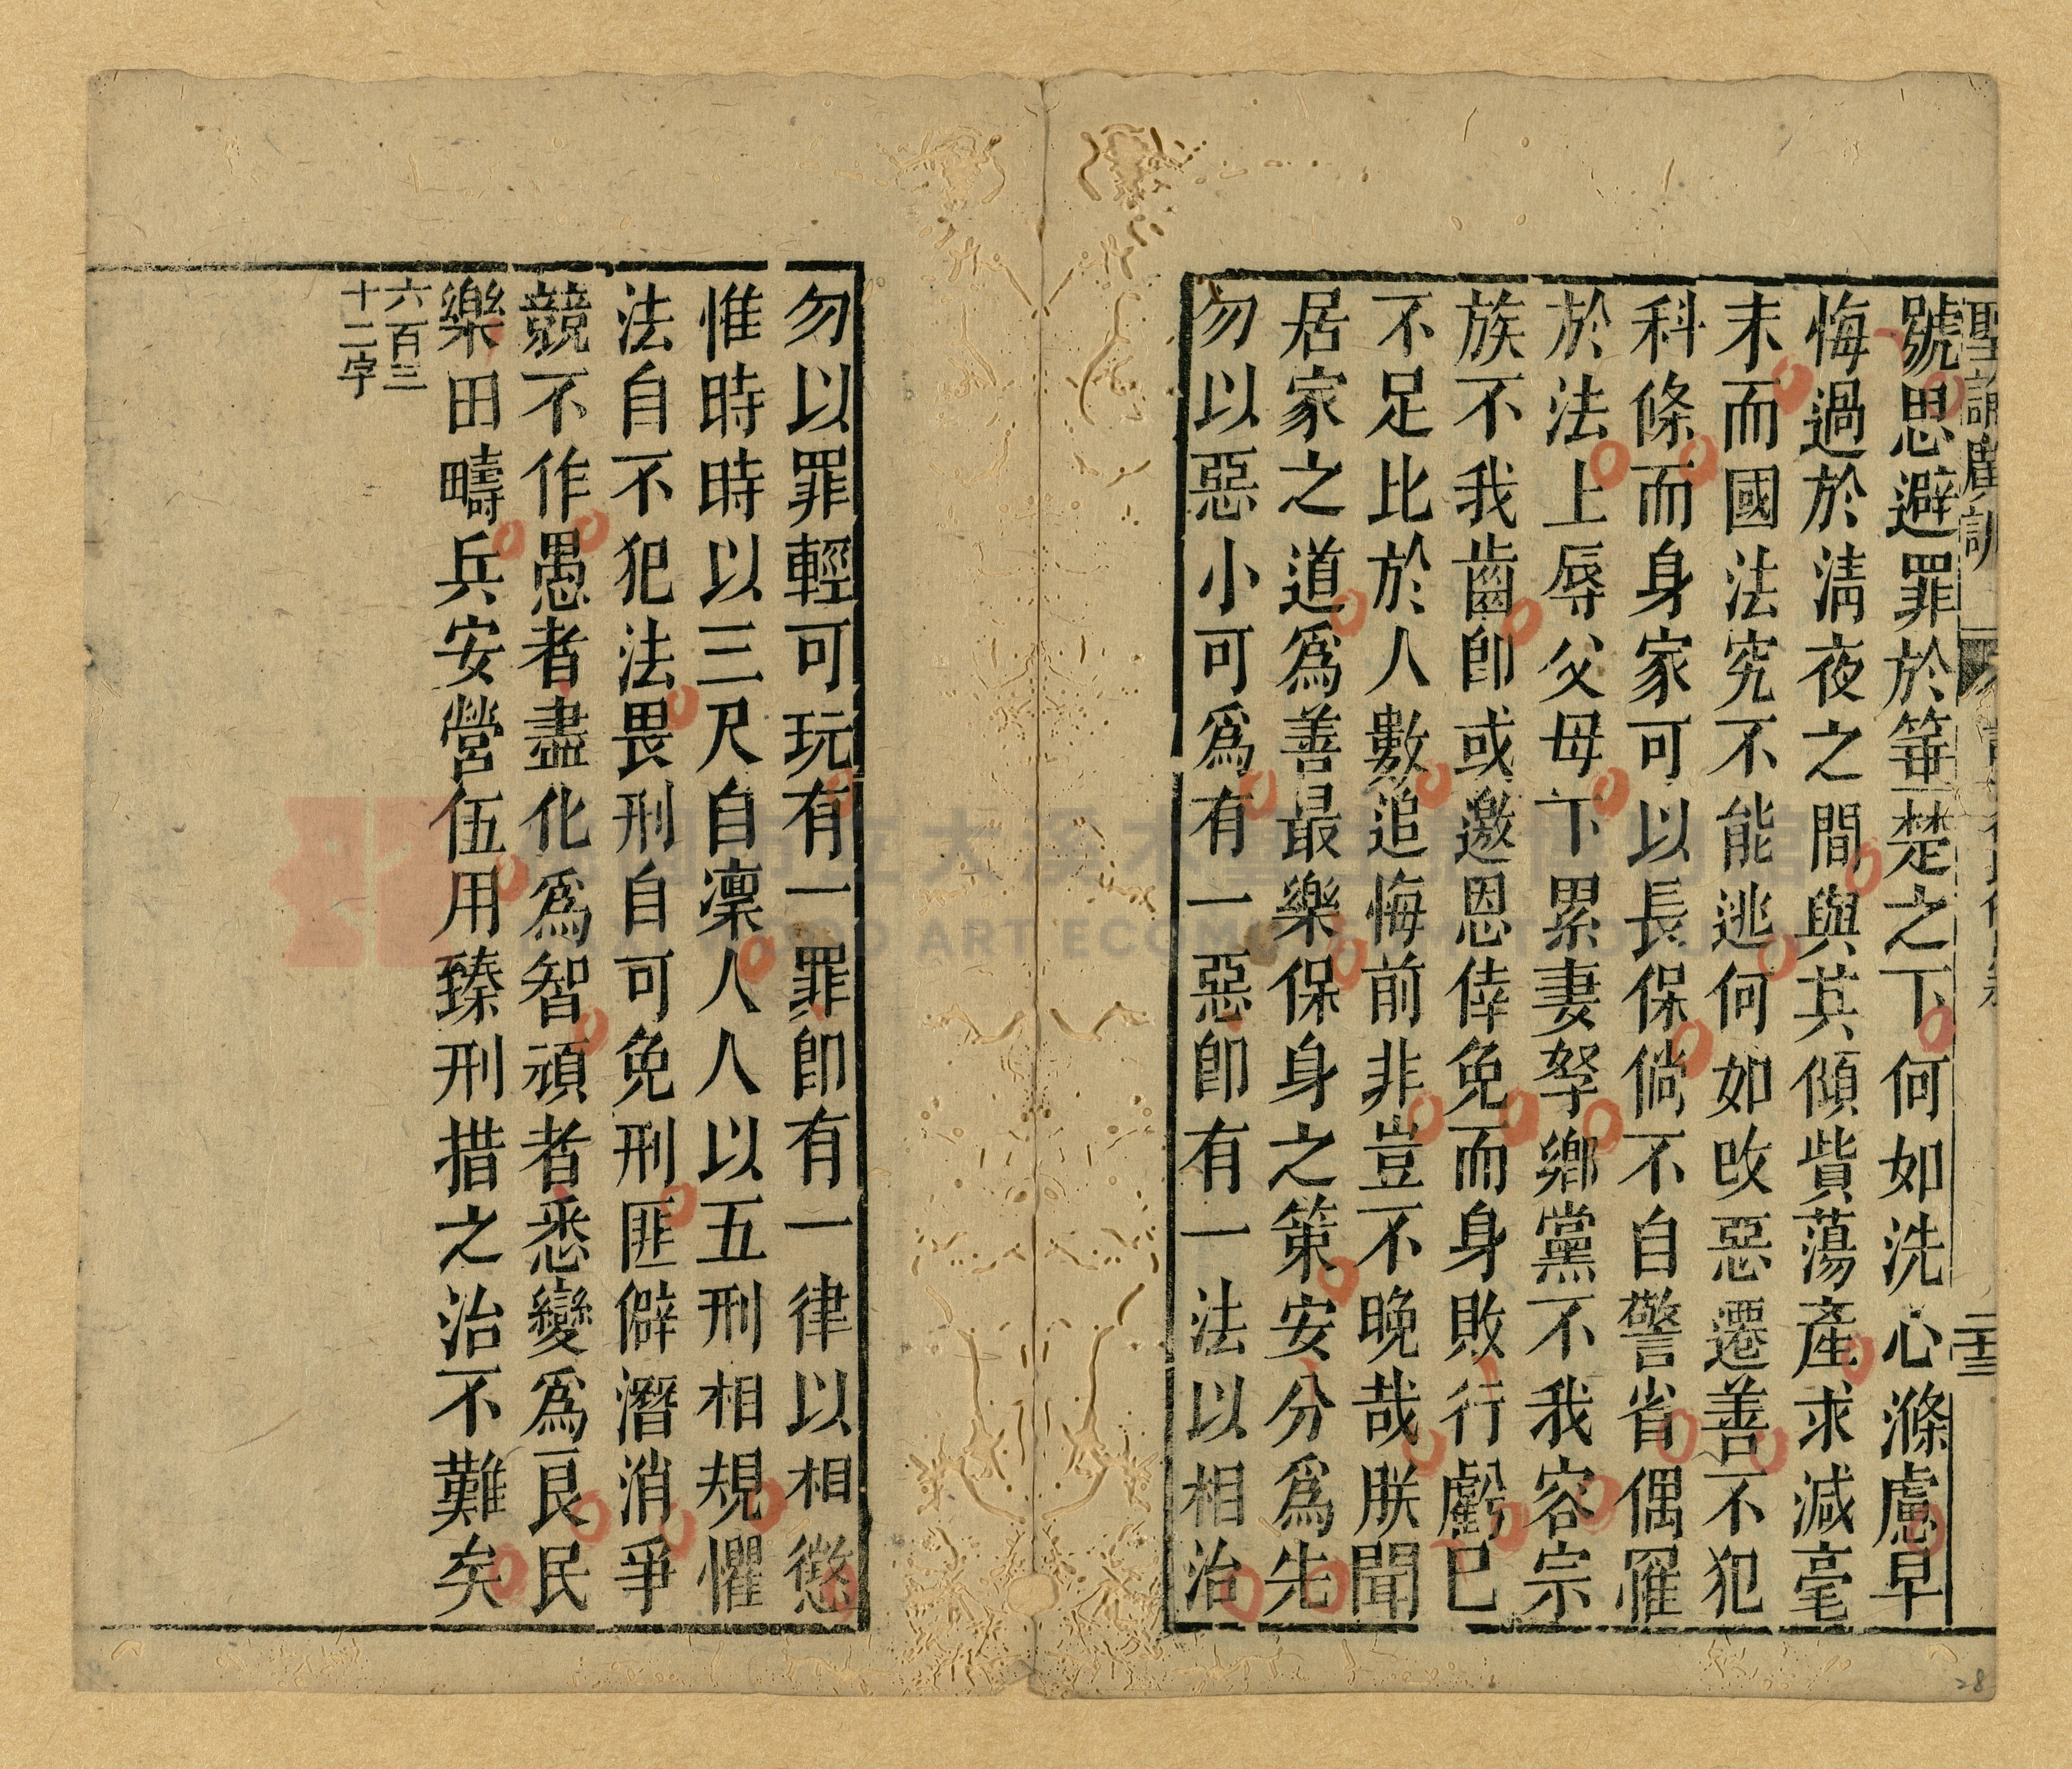 聖諭廣訓
二十三
號思避罪於箠楚之下何如洗心滌慮早
悔過於淸夜之間與其傾貲蕩產求減毫
末而國法究不能逃何如改惡遷善不犯
科條而身家可以長保倘不自警省偶罹
於法上辱父母下累妻孥鄉黨不我容宗
族不我齒卽或邀恩倖免而身敗行虧已
不足比於人數追悔前非豈不晚哉朕聞
居家之道爲善最樂保身之策安分爲先
勿以惡小可爲有一惡卽有一法以相治
勿以罪輕可玩有一罪卽有一律以相懲
惟時時以三尺自凜人人以五刑相規懼
法自不犯法畏刑自可免刑匪僻潛消爭
競不作愚者盡化爲智頑者悉變爲良民
樂田疇兵安營伍用臻刑措之治不難矣
六百三
十二字
ART ECO
28